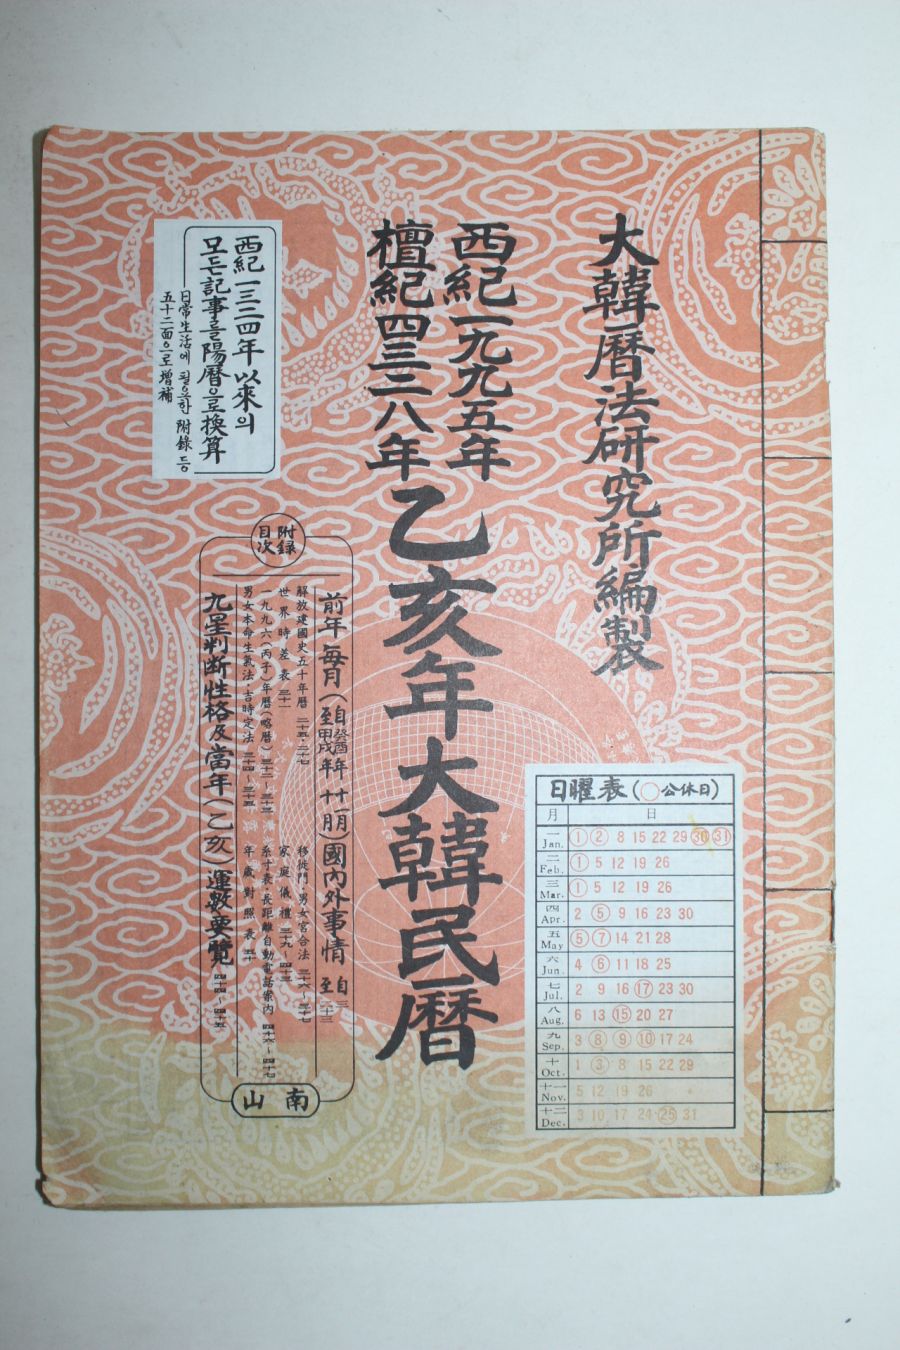 大韓曆法研究所編製
西紀一九九五年
檀紀四三二八年
乙亥年大韓民曆
西紀一三三四年以來의
모든記事를陽曆으로換算
日常生活에 필요한 附錄 등
五十二面으로 增補
附錄
目次
前年每月(自癸酉年十一月至甲戌年十月)國內外事情 自三至二十三
解放建國史五十年曆 二十五・二十七
世界時差表 三十一
一九九六(丙子)年曆(略曆) 三十二~三十三
男女本命生氣法・吉時定法 三十四~三十五
移徙門・男女宮合法 三十六~三十七
家庭儀禮 三十九~四十三
系寸表・長距離自動電話案內 四十六~四十七
年歲對照表 五十
九星判斷性格及當年(乙亥)運數要覽 四十四~四十五
南山
日曜表(○公休日)
月 日
一 Jan. 1 2 8 15 22 29 30 31
二 Feb. 1 5 12 19 26
三 Mar. 1 5 12 19 26
四 Apr. 2 5 9 16 23 30
五 May 5 7 14 21 28
六 Jun. 4 6 11 18 25
七 Jul. 2 9 16 17 23 30
八 Aug. 6 13 15 20 27
九 Sep. 3 8 9 10 17 24
十 Oct. 1 3 8 15 22 29
十一 Nov. 5 12 19 26
十二 Dec. 3 10 17 24 25 31